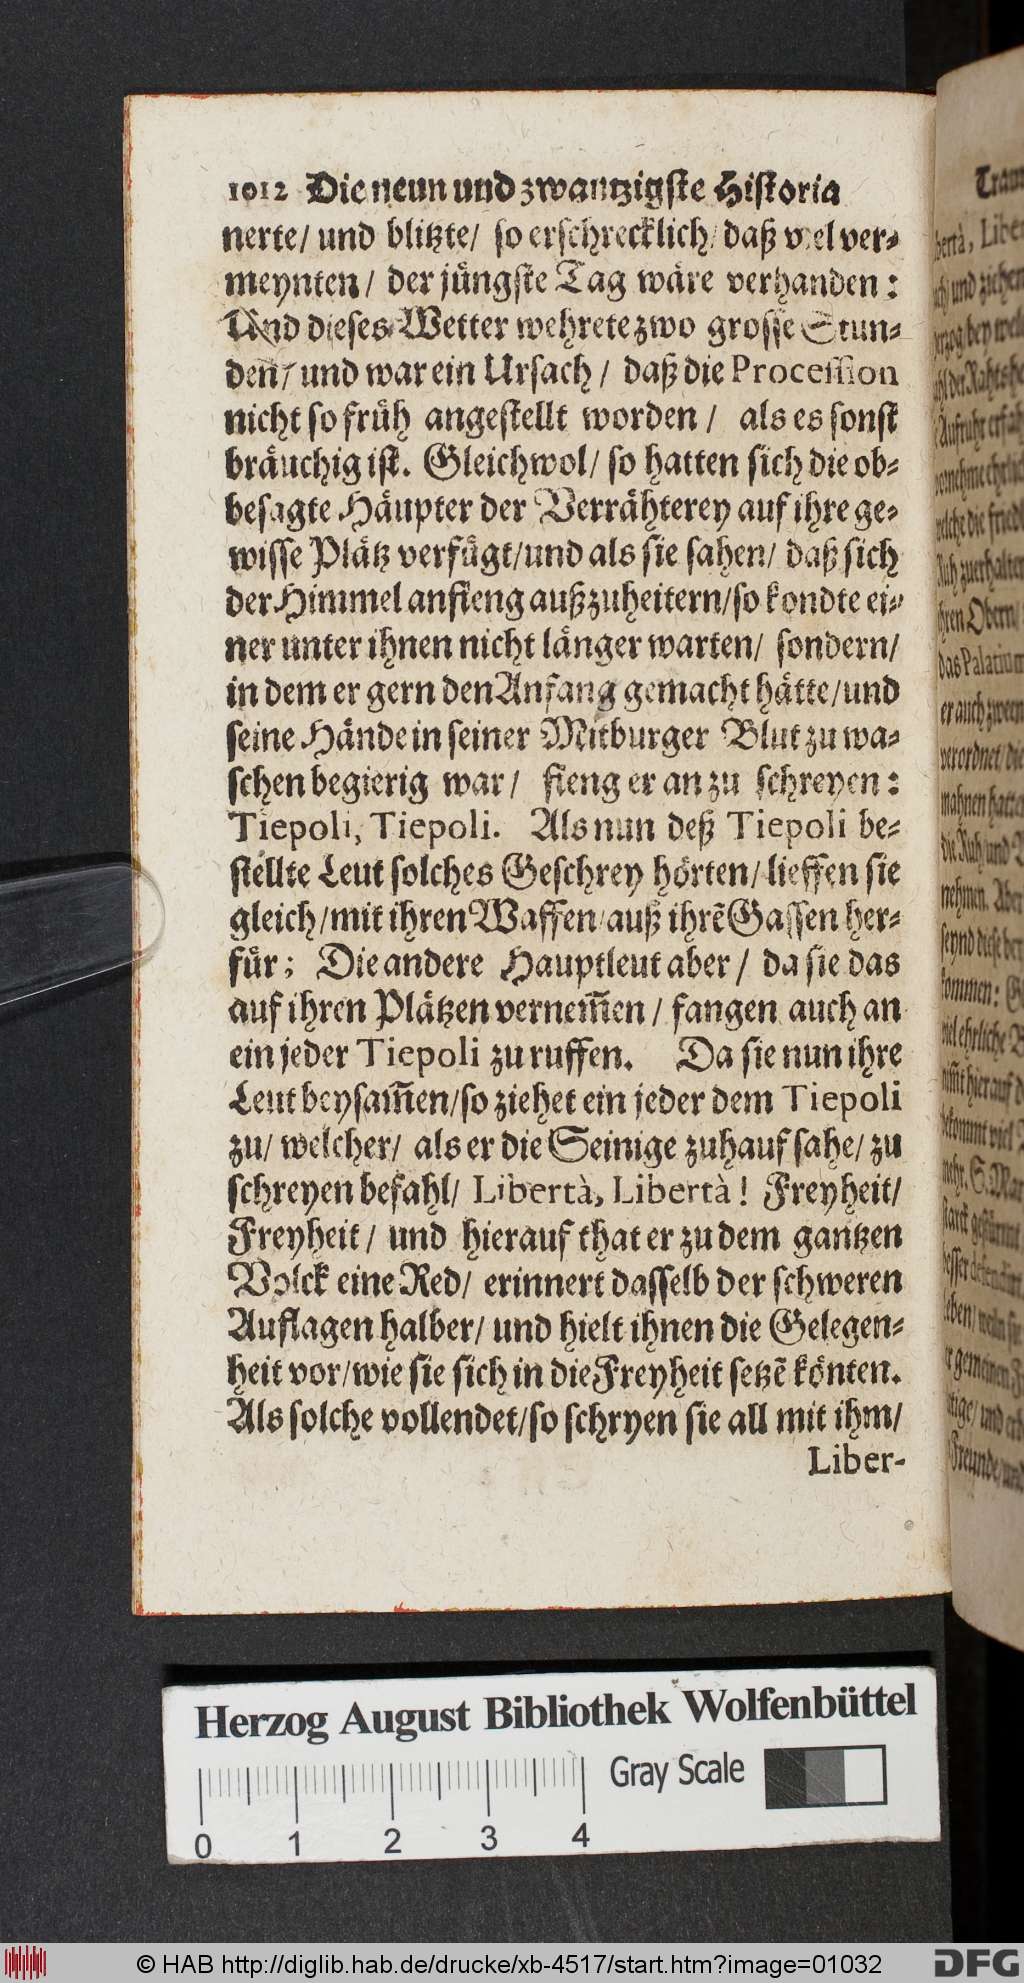 1012 Die neun und zwantzigste Historia
nerte/ und blitzte/ so erschrecklich/ daß viel ver-
meynten/ der jüngste Tag wäre verhanden:
Und dieses Wetter wehrete zwo grosse Stun-
den/ und war ein Ursach/ daß die Procession
nicht so früh angestellt worden/ als es sonst
bräuchig ist. Gleichwol/ so hatten sich die ob-
besagte Häupter der Verrähterey auf ihre ge-
wisse Plätz verfügt/und als sie sahen/ daß sich
der Himmel anfieng außzuheitern/so kondte ei-
ner unter ihnen nicht länger warten/ sondern/
in dem er gern den Anfang gemacht hätte/und
seine Hände in seiner Mitburger Blut zu wa-
schen begierig war/ fieng er an zu schreyen:
Tiepoli, Tiepoli. Als nun deß Tiepoli be-
stellte Leut solches Geschrey hörten/ lieffen sie
gleich/mit ihren Waffen/auß ihrẽ Gassen her-
für; Die andere Hauptleut aber/ da sie das
auf ihren Plätzen vernem̃en/ fangen auch an
ein jeder Tiepoli zu ruffen. Da sie nun ihre
Leut beysam̃en/so ziehet ein jeder dem Tiepoli
zu/ welcher/ als er die Seinige zuhauf sahe/ zu
schreyen befahl/ Libertà, Libertà! Freyheit/
Freyheit/ und hierauf that er zu dem gantzen
Volck eine Red/ erinnert dasselb der schweren
Auflagen halber/ und hielt ihnen die Gelegen-
heit vor/wie sie sich in die Freyheit setzẽ könten.
Als solche vollendet/so schryen sie all mit ihm/
Liber-
Herzog August Bibliothek Wolfenbüttel
Gray Scale
0 1 2 3 4
© HAB http://diglib.hab.de/drucke/xb-4517/start.htm?image=01032
DFG